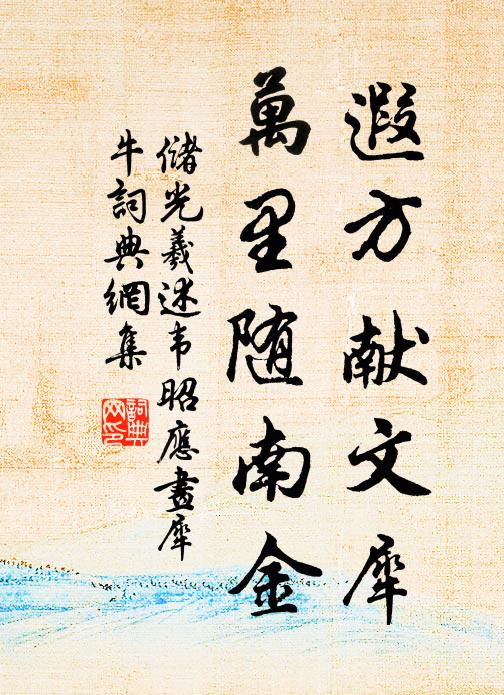 遐方献文犀
萬里随南金
儲光羲述韦昭應畫犀
牛詞典網集
詞典
网印